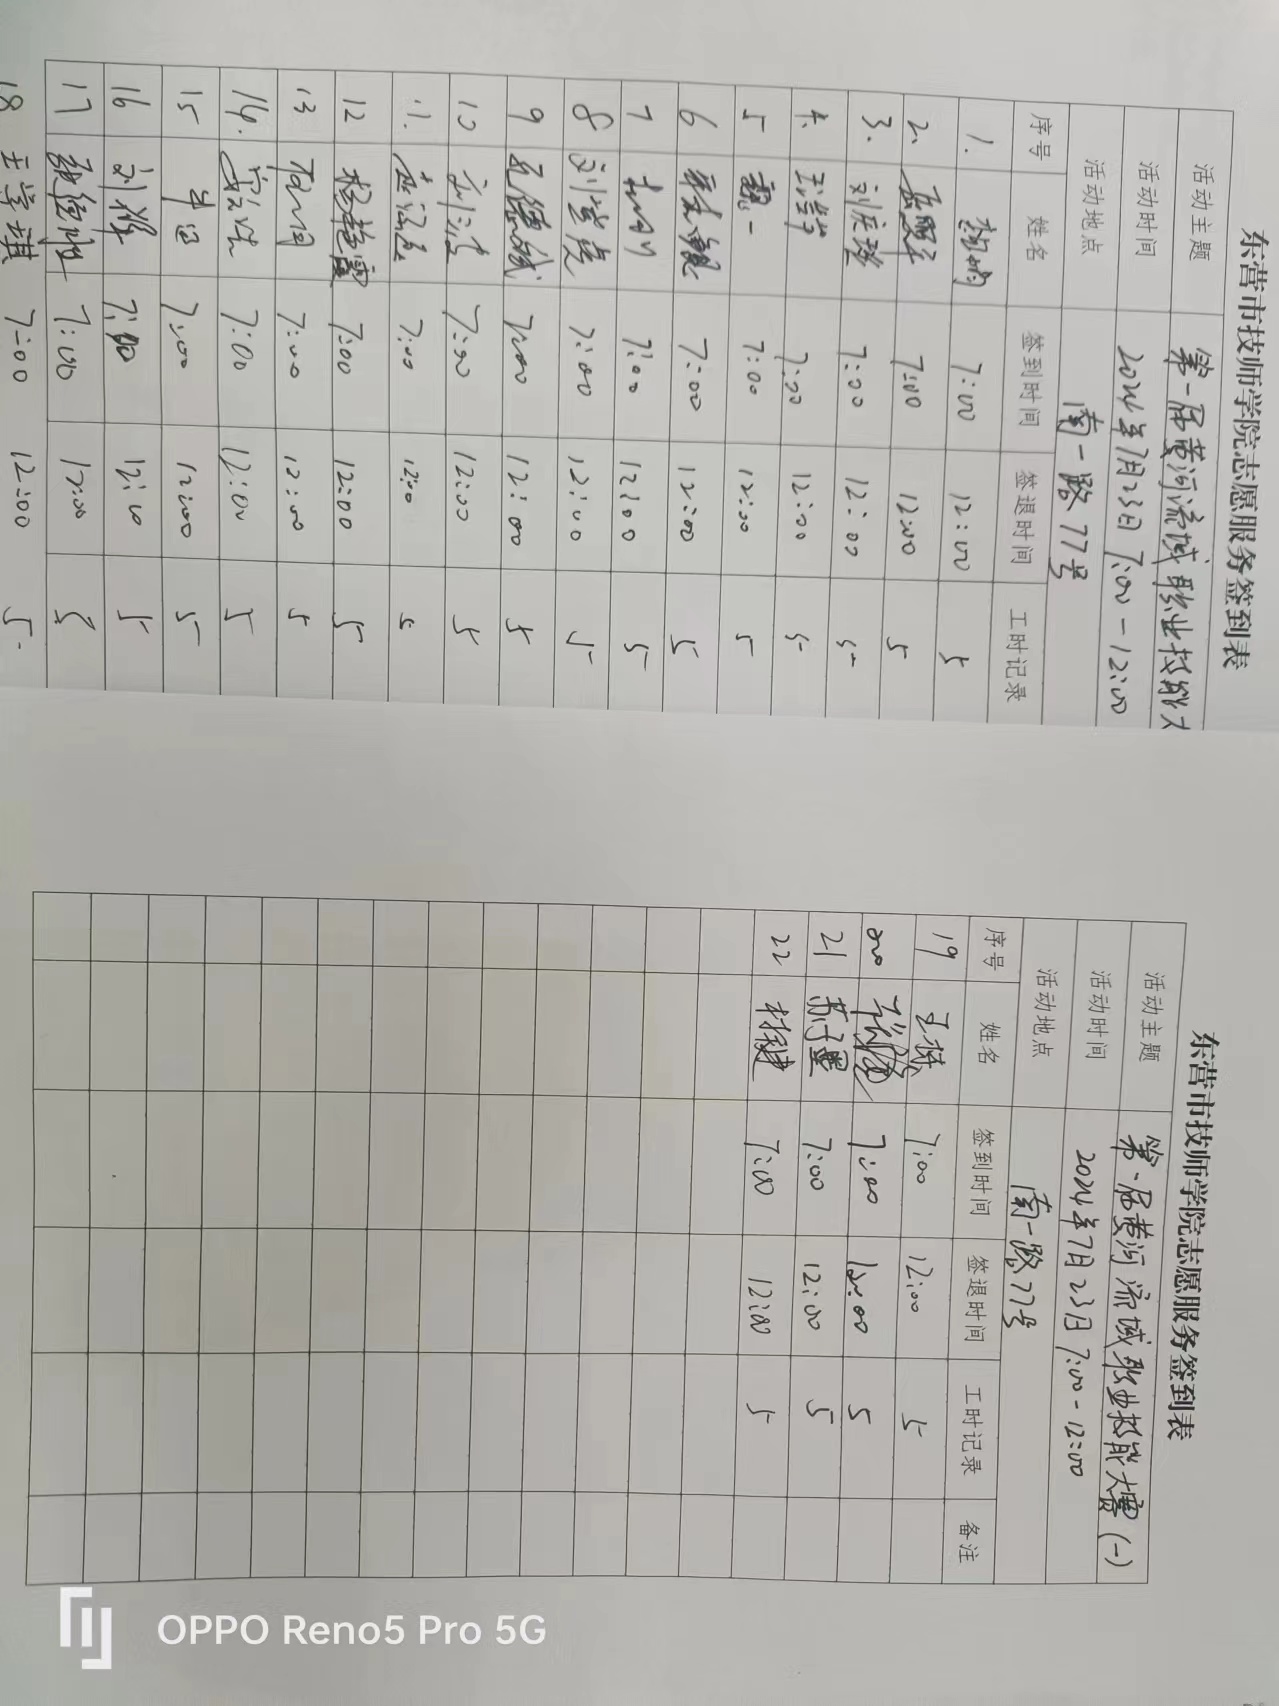 东营市技师学院志愿服务签到表
活动主题 第一届黄河流域职业技能大
活动时间 2024年7月23日 7:00-12:00
活动地点 南一路77号
序号 姓名 签到时间 签退时间 工时记录
1. 7:00 12:00 5
2. 7:00 12:00 5
3. 刘庆瑞 7:00 12:00 5
4. 7:00 12:00 5
5 魏一 7:00 12:00 5
6 7:00 12:00 5
7 7:00 12:00 5
8 刘莹虎 7:00 12:00 5
9 7:00 12:00 5
10 7:00 12:00 5
11. 7:00 12:00 5
12 杨艳霞 7:00 12:00 5
13 7:00 12:00 5
14. 7:00 12:00 5
15 7:00 12:00 5
16 7:00 12:10 5
17 7:00 12:00 5
18 王学琪 7:00 12:00 5
东营市技师学院志愿服务签到表
活动主题 第一届黄河流域职业技能大赛(一)
活动时间 2024年7月23日 7:00-12:00
活动地点 南一路77号
序号 姓名 签到时间 签退时间 工时记录 备注
19 7:00 12:00 5
20 7:00 12:00 5
21 苏子墨 7:00 12:00 5
22 林健 7:00 12:00 5
OPPO Reno5 Pro 5G